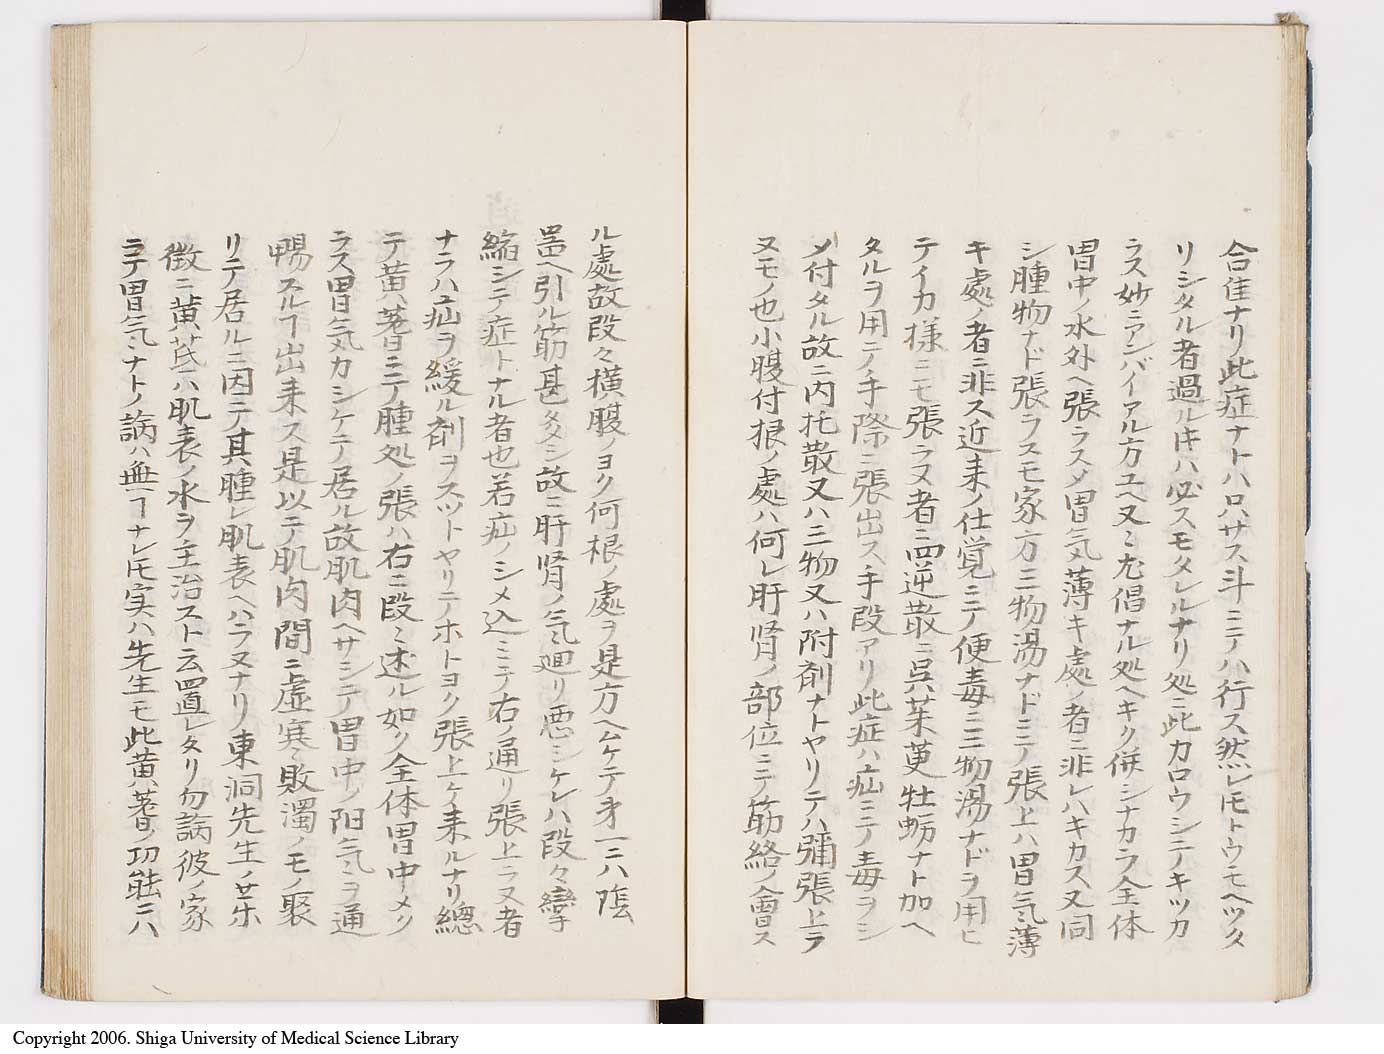 合隹ナリ此症ナトハ只サス斗ニテハ行ス然レ𪜈トウモヘツタ
リシタル者過ル𪜈ハ必スモタレルナリ処ニ此カロウシテキツカ
ラス妙ニアンバイアル方ユヘ又ミ尤倡ナル処ヘキク併シナカラ全体
胃中ノ水外ヘ張ラスメ胃気薄キ處ノ者ニ非レハキカス又同
シ腫物ナド張フスモ家方三物湯ナドニテ張上ハ胃気薄
キ處ノ者ニ非ス近来ノ仕覚ニテ便毒ニ三物湯ナドヲ用ヒ
テイカ様ニモ張ラヌ者ニ四逆散ニ呉茱萸牡蛎ナト加ヘ
タルヲ用テ手際ニ張出ス手段アリ此症ハ疝ニテ毒ヲシ
メ付タル故ニ内托散又ハ三物又ハ附剤ナトヤリテハ彌張上ラ
ヌモノ也小腹付根ノ處ハ何レ肝腎ノ部位ニテ筋絡ノ會ス
ル處故段々横腹ノヨク何根ノ處ヲ是方ヘムケテ才一ニハ陰
噐ヘ引ル筋甚多シ故ニ肝腎ノ気廻リ悪シケレハ段々攣
縮シテ症トナル者也若疝ノシメ込ミテ右ノ通リ張上ラヌ者
ナラハ疝ヲ緩ル剤ヲスツトヤリテホトヨク張上ケ来ルナリ總
テ黄耆ニテ腫処ノ張ハ右ニ段ミ述ル如ク全体胃中メツ
ラス胃気カシケテ居ル故肌肉ヘサシテ胃中ノ阳気ヲ通
暢スルヿ出来ス是以テ肌肉間ニ虚寒ミ敗濁ノモノ聚
リテ居ルニ因テ其腫レ肌表ヘハラヌナリ東洞先生ノ𦬇ホ
徴ニ黄芪ハ肌表ノ水ヲ主治スト云置レタリ勿論彼ノ家
ラテ胃気ナトノ論ハ無ヿナレ𪜈実ハ先生モ此黄耆ノ功能ニハ
Copyright 2006. Shiga University of Medical Science Library